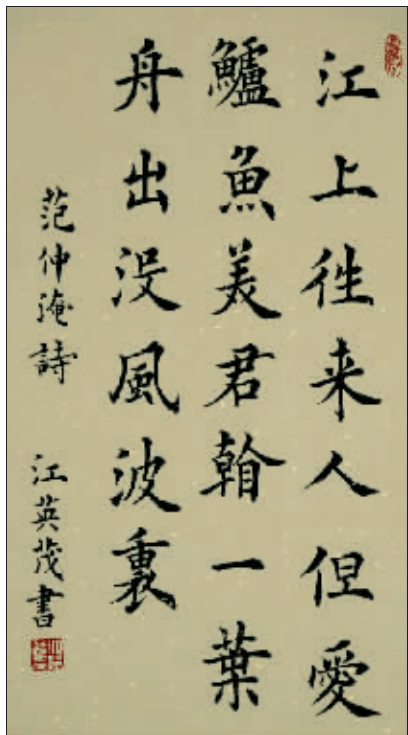 江上徃来人但愛
鱸魚美君看一葉
舟出没風波裏
范仲淹詩 江英茂書